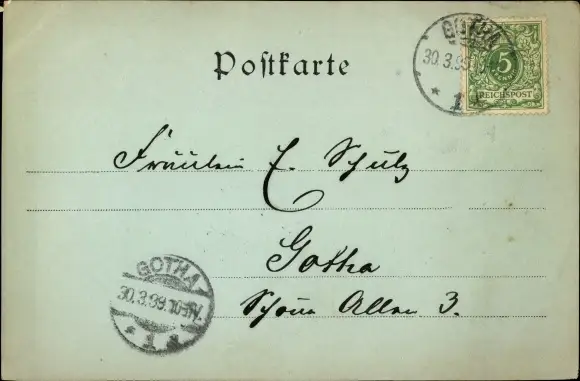 GOTHA
30.3.99
* 1 *
5
REICHSPOST
Postkarte
Fräulein E. Schulz
Gotha
Schöne Allee 3.
GOTHA
30.3.99.
* 1 *